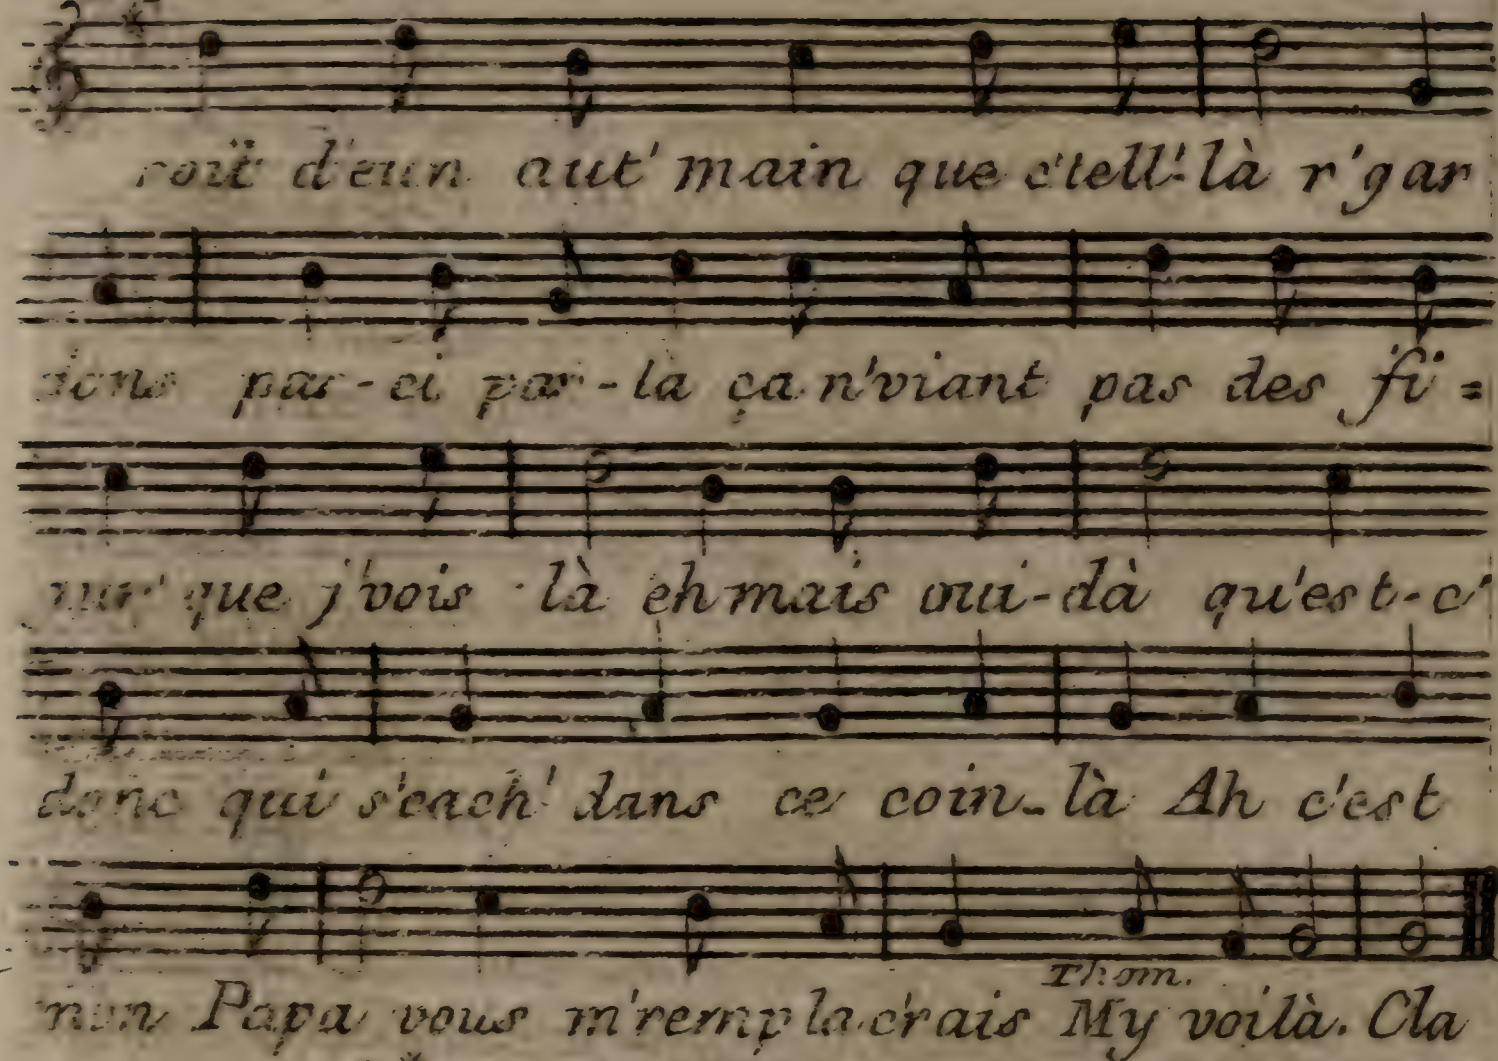 roit d'eun aut' main que c'tell'-là r'gar
dons par-ci par-là ça n'viant pas des fi=
nur' que j'vois là eh mais oui-dà qu'est-c'
donc qui s'cach' dans ce coin-là Ah c'est
mon Papa vous m'remplac'rais Thom. My voilà. Cla